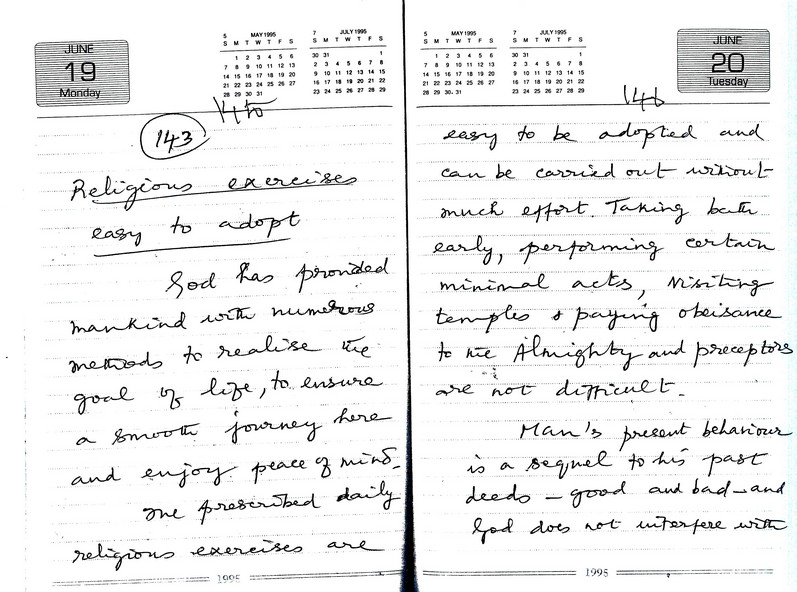 JUNE
19
Monday
5 MAY 1995
S M T W T F S
1 2 3 4 5 6
7 8 9 10 11 12 13
14 15 16 17 18 19 20
21 22 23 24 25 26 27
28 29 30 31
7 JULY 1995
S M T W T F S
30 31 1
2 3 4 5 6 7 8
9 10 11 12 13 14 15
16 17 18 19 20 21 22
23 24 25 26 27 28 29
143
Religious exercises
easy to adopt
God has provided
mankind with numerous
methods to realise the
goal of life, to ensure
a smooth journey here
and enjoy peace of mind.
The prescribed daily
religious exercises are
1995
5 MAY 1995
S M T W T F S
1 2 3 4 5 6
7 8 9 10 11 12 13
14 15 16 17 18 19 20
21 22 23 24 25 26 27
28 29 30 31
7 JULY 1995
S M T W T F S
30 31 1
2 3 4 5 6 7 8
9 10 11 12 13 14 15
16 17 18 19 20 21 22
23 24 25 26 27 28 29
JUNE
20
Tuesday
146
easy to be adopted and
can be carried out without
much effort. Taking bath
early, performing certain
minimal acts, visiting
temples & paying obeisance
to the Almighty and preceptors
are not difficult.
Man's present behaviour
is a sequel to his past
deeds - good and bad - and
God does not interfere with
1995